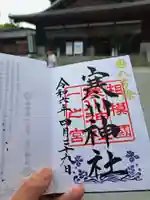 八方除
相模國
一之宮
寒川神社
令和六年四月